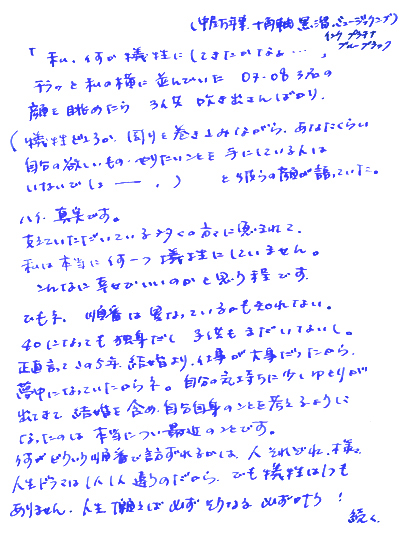 「私、何か犠牲にしてきたかなぁ…」
チラッと私の横に並んでいた 07.08 3名の
顔を眺めたら 3人 吹き出さんばかり。
(犠牲どころか、周りを巻き込みながら、あなたくらい
自分の欲しいもの、やりたいことを手にしている人は
いないでしょ ――。) と彼らの顔が語っていた。
ハイ、真実です。
支えていただいている多くの方々に恵まれて、
私は本当に何一つ犠牲にしていません。
こんなに幸せでいいのかと思う程です。
でもネ、順番は異なっているかも知れない。
40になっても独身だし 子供もまだいないし。
正直言ってこの5年、結婚より、仕事が大事だったから、
夢中になっていたからネ。自分の気持ちに少しゆとりが
出てきて 結婚を含め、自分自身のことを考えるように
なったのは 本当につい最近のことです。
何がどういう順番で訪ずれるかは、人それぞれ、様々
人生ドラマは1人1人違うのだから、でも犠牲は1つも
ありません。人生 願えば 必ず そうなる 必ずかなう!
続く.